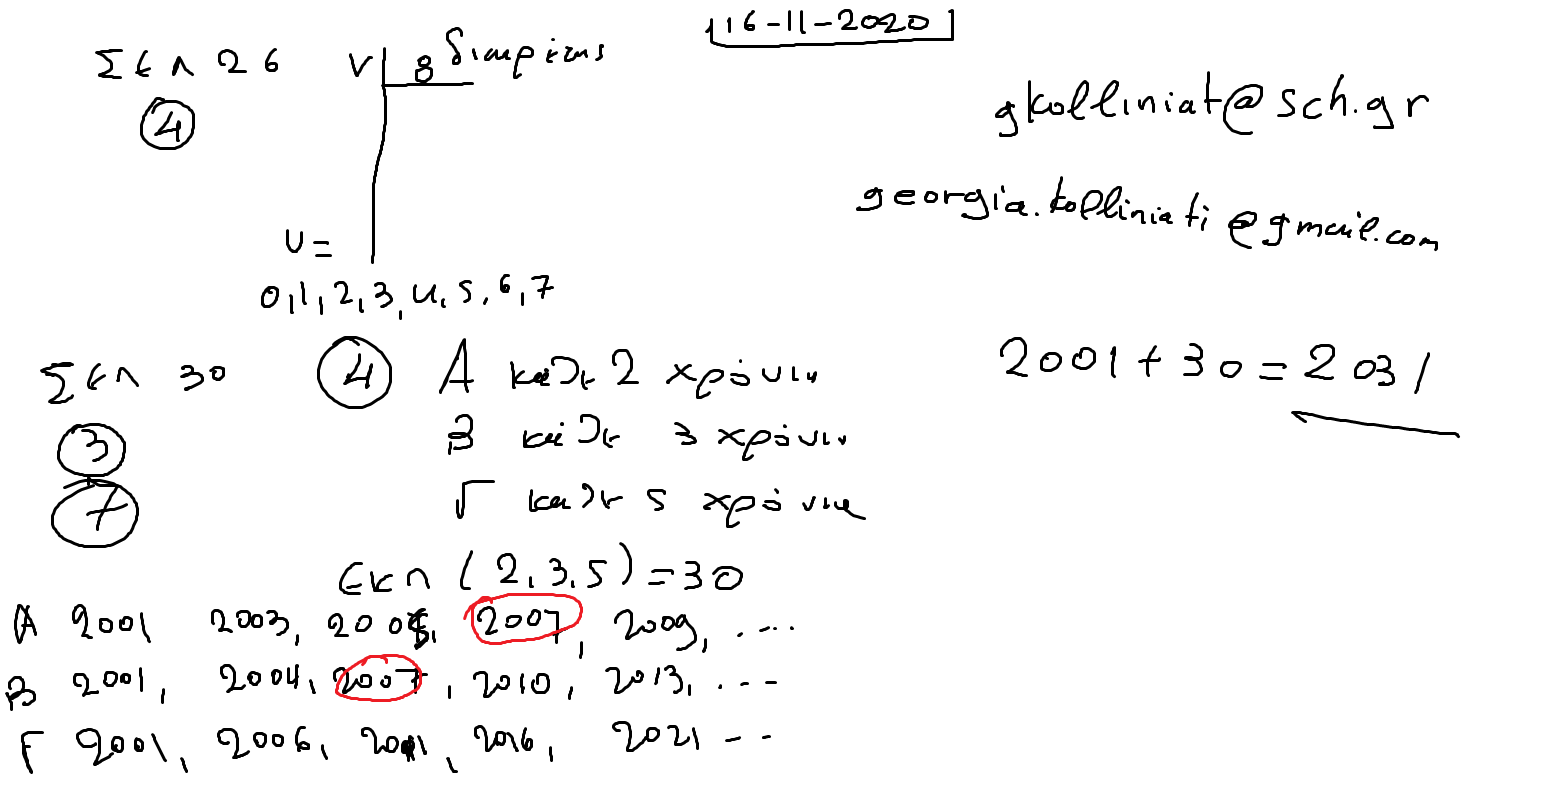 16-11-2020
Σελ 26
4
ν 8 διαιρέτης
υ=
0,1,2,3,4,5,6,7
gkolliniat@sch.gr
georgia.kolliniati@gmail.com
Σελ 30
3
7
4
Α κάθε 2 χρόνια
Β κάθε 3 χρόνια
Γ κάθε 5 χρόνια
2001+30=2031
ΕΚΠ (2,3,5)=30
Α 2001 2003, 2005, 2007, 2009, ....
Β 2001, 2004, 2007, 2010, 2013, ---
Γ 2001, 2006, 2011, 2016, 2021 --